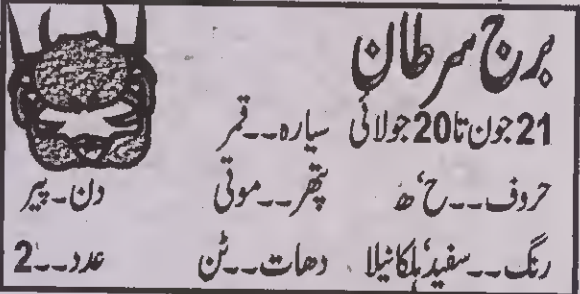 برج سرطان
21جون تا20جولائی سیارہ۔۔قمر
حروف۔۔ح‘ھ پتھر۔۔موتی دن۔پیر
رنگ۔۔سفید‘ہلکانیلا دھات۔۔ٹن عدد۔۔2